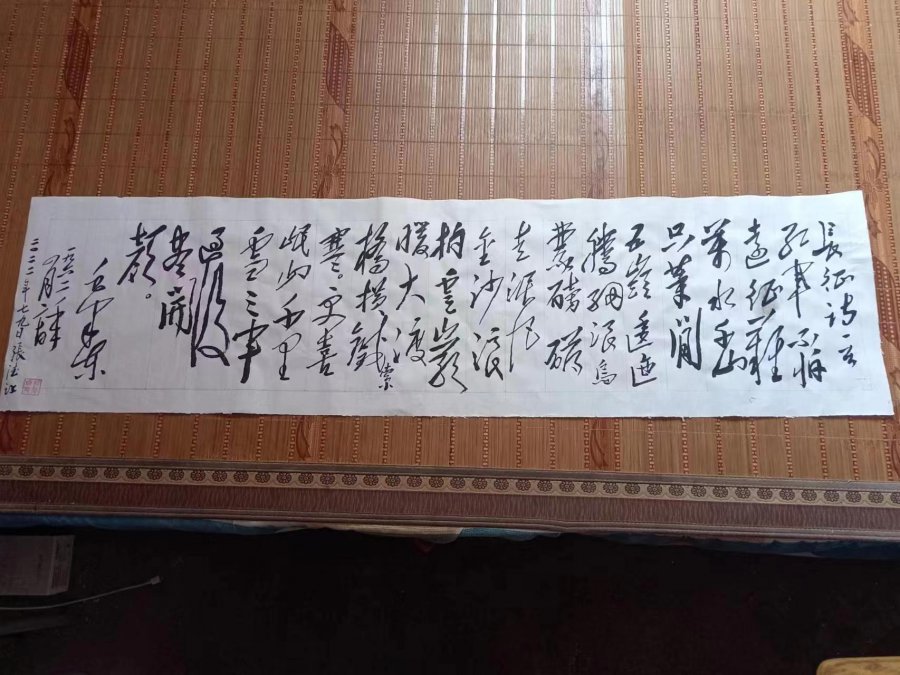 長征詩一首
紅軍不怕
遠征難
萬水千山
只等閒
五嶺逶迤
騰細浪烏
蒙磅礴
走泥丸
金沙浪
拍雲崖
暖大渡
橋橫鐵索
寒。更喜
岷山千里
雪三軍
過後
盡開
顏。
毛澤東
一九六二年
四月
二〇二二年七月張法江